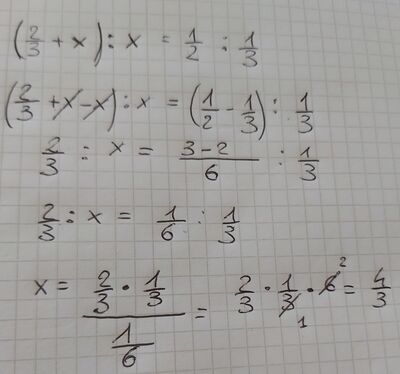 (2/3 + x) : x = 1/2 : 1/3
(2/3 + x - x) : x = (1/2 - 1/3) : 1/3
2/3 : x = (3-2)/6 : 1/3
2/3 : x = 1/6 : 1/3
x = (2/3 · 1/3)/(1/6) = 2/3 · 1/3 1 · 6 2 = 4/3